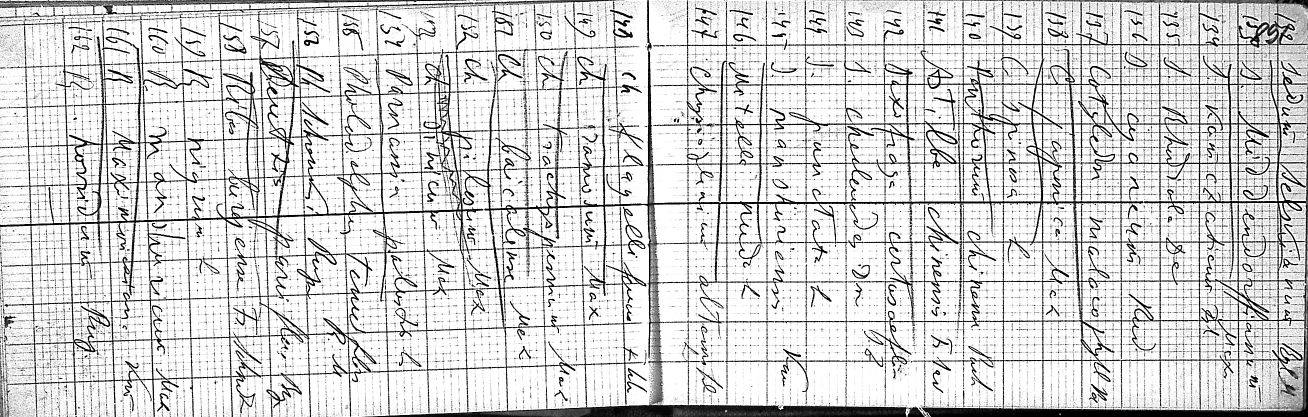 132 Sedum Selskianum Rgl M
133 S. Middendorffianum Max
134 S. Kamtschaticum
135 S. Rhodiola Dc
136 S. cyaneum Rud
137 Cotyledon malacophyll Pa
138 C. japonica Max
139 C. spinosa L
140 Penthorum chinense Pursh
141 Astilbe chinensis Fr Sav
142 Saxifraga
143 S. cherleriodes Dn
144 S. punctata L
145 S. manshuriensis
146 Mitella nuda L
147 Chrysosplenium alternifl
148 Ch. flagelliferum
149 Ch ramosum Max
150 Ch trachyspermum Max
151 Ch baicalense Max
152 Ch pilosum Max
Ch Max
154 Parnassia palustris L
155 Philadelphus tenuifol R. M
156 Ph Schrenki Rupr
157 Deutzia parviflora Bg
158 Ribes burejense Fr. Schmidt
159 R nigrum L
160 R. manshuricum Max
161 R Maximowiczian. Kom
162 R. horridum Rupr.